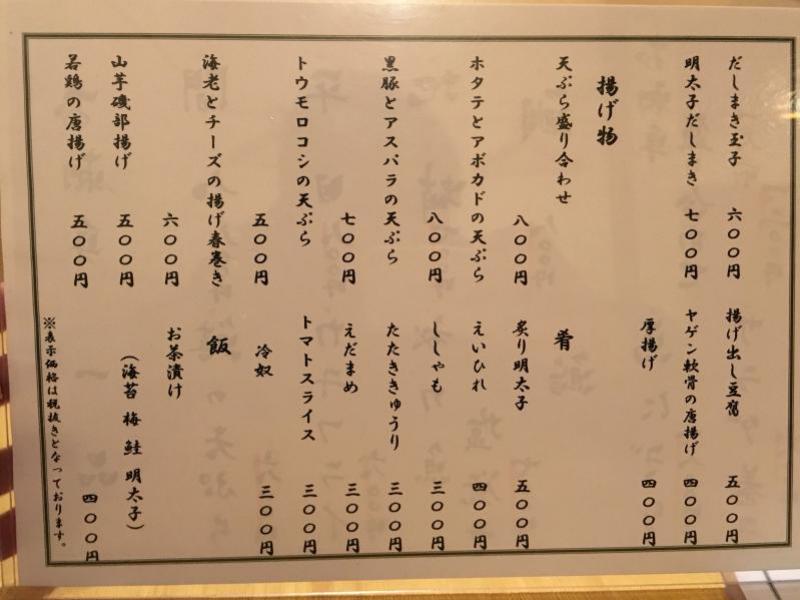 だしまき玉子 六〇〇円
明太子だしまき 七〇〇円
揚げ物
天ぷら盛り合わせ 八〇〇円
ホタテとアボカドの天ぷら 八〇〇円
黒豚とアスパラの天ぷら 七〇〇円
トウモロコシの天ぷら 五〇〇円
海老とチーズの揚げ春巻き 六〇〇円
山芋磯部揚げ 五〇〇円
若鶏の唐揚げ 五〇〇円
揚げ出し豆腐 五〇〇円
ヤゲン軟骨の唐揚げ 四〇〇円
厚揚げ 四〇〇円
肴
炙り明太子 五〇〇円
えいひれ 四〇〇円
ししゃも 三〇〇円
たたききゅうり 三〇〇円
えだまめ 三〇〇円
トマトスライス 三〇〇円
冷奴 三〇〇円
飯
お茶漬け
（海苔 梅 鮭 明太子） 四〇〇円
※表示価格は税抜きとなっております。